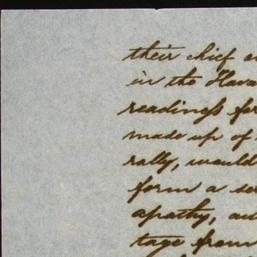 their chief
in the Hava
readings for
made up of
rally, would
form a se
apathy, au
tage from